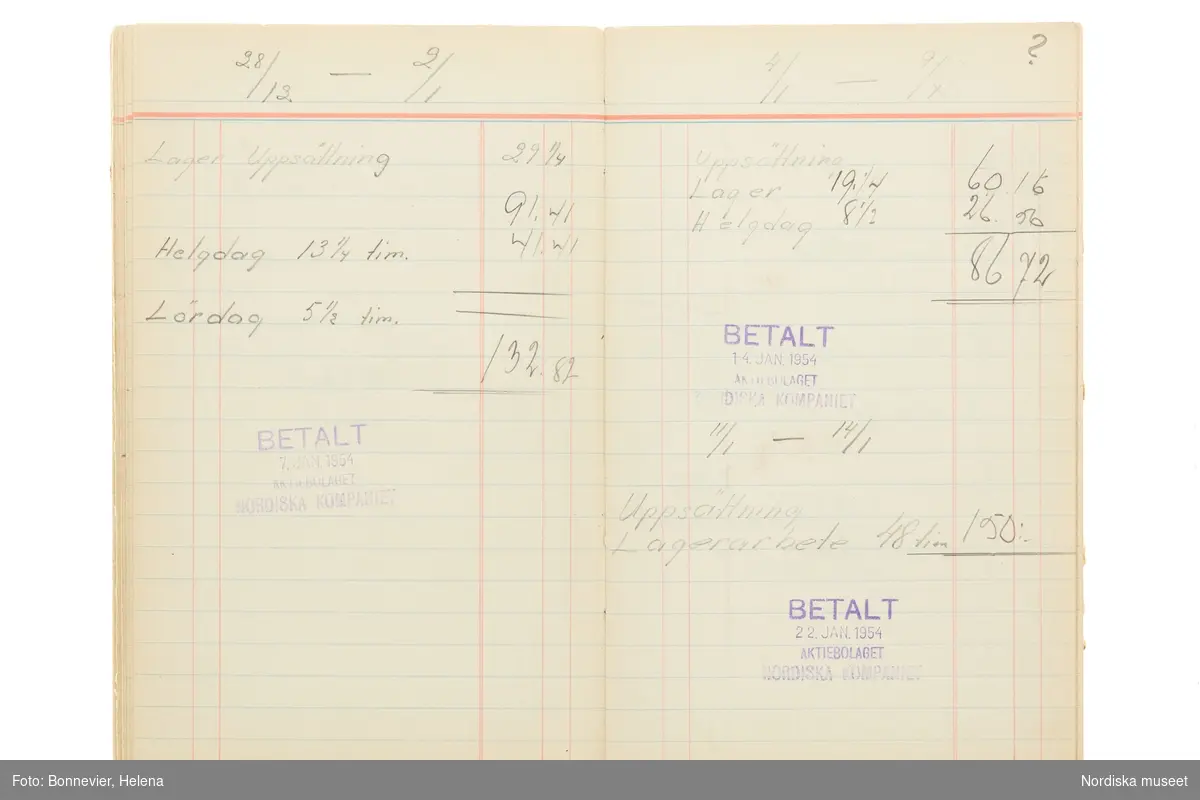 28/12 — 2/1
Lager Uppsättning 29 1/4
91.41
Helgdag 13 1/4 tim. 41.41
Lördag 5 1/2 tim.
132.82
BETALT
7. JAN. 1954
AKTIEBOLAGET
NORDISKA KOMPANIET
?
4/1 — 9/1
Uppsättning
Lager 19 1/4 60.16
Helgdag 8 1/2 26.56
86 72
BETALT
14. JAN. 1954
AKTIEBOLAGET
DISKA KOMPANIET
11/1 — 14/1
Uppsättning
Lagerarbete 48 tim 150:-
BETALT
22. JAN. 1954
AKTIEBOLAGET
NORDISKA KOMPANIET
Foto: Bonnevier, Helena
Nordiska museet